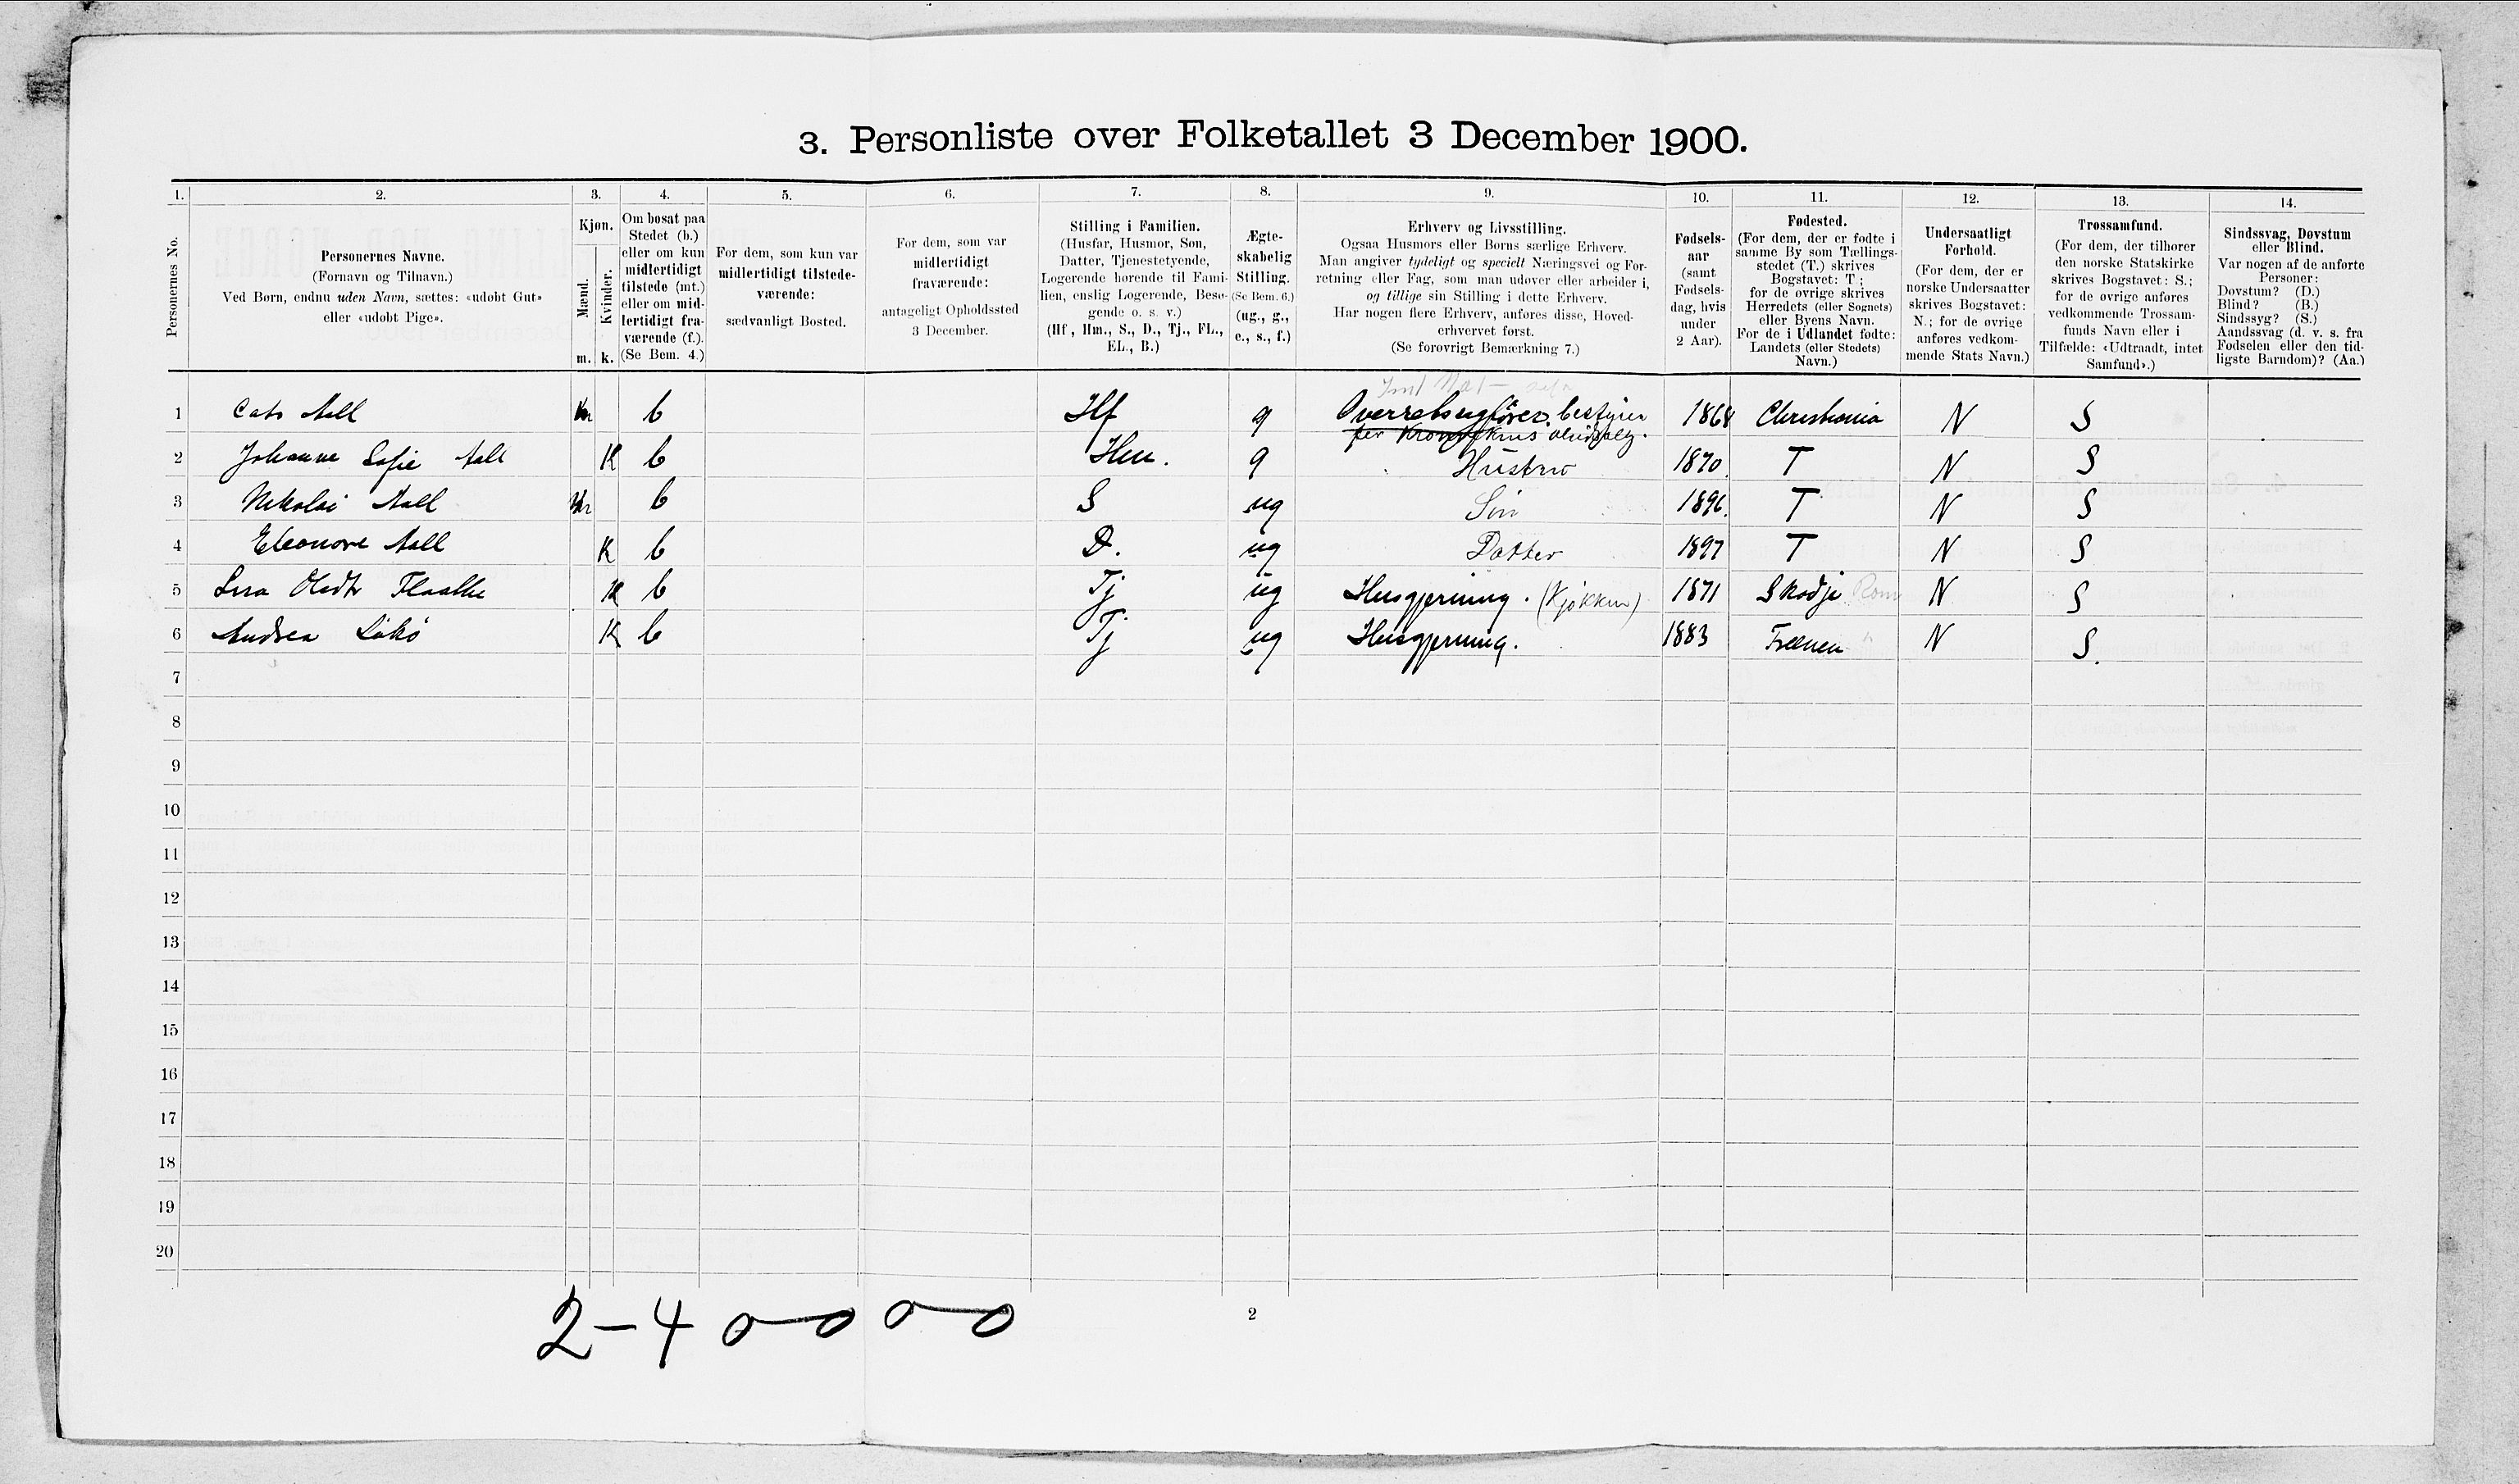 3. Personliste over Folketallet 3 December 1900.
1. 2. 3. 4. 5. 6. 7. 8. 9. 10. 11. 12. 13. 14.
Personernes No.
Personernes Navne.
(Fornavn og Tilnavn.)
Ved Børn, endnu uden Navn, sættes: «udøbt Gut»
eller «udøbt Pige».
Kjøn.
Mænd.
Kvinder.
m. k.
Om bosat paa
Stedet (b.)
eller om kun
midlertidigt
tilstede (mt.)
eller om mid-
lertidigt fra-
værende (f.).
(Se Bem. 4.)
For dem, som kun var
midlertidigt tilstede-
værende:
sædvanligt Bosted.
For dem, som var
midlertidigt
fraværende:
antageligt Opholdssted
3 December.
Stilling i Familien.
(Husfar, Husmor, Søn,
Datter, Tjenestetyende,
Logerende hørende til Fami-
lien, enslig Logerende, Besø-
gende o. s. v.)
(Hf, Hm., S., D., Tj., FL.,
EL., B.)
Ægte-
skabelig
Stilling.
(Se Bem. 6.)
(ug., g.,
e., s., f.)
Erhverv og Livsstilling.
Ogsaa Husmors eller Børns særlige Erhverv.
Man angiver tydeligt og specielt Næringsvei og For-
retning eller Fag, som man udøver eller arbeider i,
og tillige sin Stilling i dette Erhverv.
Har nogen flere Erhverv, anføres disse, Hoved-
erhvervet først.
(Se forøvrigt Bemærkning 7.)
Fødsels-
aar
(samt
Fødsels-
dag, hvis
under
2 Aar).
Fødested.
(For dem, der er fødte i
samme By som Tællings-
stedet (T.) skrives
Bogstavet: T;
for de øvrige skrives
Herredets (eller Sognets)
eller Byens Navn.
For de i Udlandet fødte:
Landets (eller Stedets)
Navn.)
Undersaatligt
Forhold.
(For dem, der er
norske Undersaatter
skrives Bogstavet:
N.; for de øvrige
anføres vedkom-
mende Stats Navn.)
Trossamfund.
(For dem, der tilhører
den norske Statskirke
skrives Bogstavet: S.;
for de øvrige anføres
vedkommende Trossam-
funds Navn eller i
Tilfælde: «Udtraadt, intet
Samfund».)
Sindssvag, Døvstum
eller Blind.
Var nogen af de anførte
Personer:
Døvstum? (D.)
Blind? (B.)
Sindssyg? (S.)
Aandssvag (d. v. s. fra
Fødselen eller den tid-
ligste Barndom)? (Aa.)
1 Cato Aall m b Hf g Overretssagfører, bestyrer 1868 Christiania N S
2 Johanne Sofie Aall K b Hm. g Hustru 1870. T N S
3 Nikolai Aall m b S ug Søn 1896. T N S
4 Eleonore Aall K b D. ug Datter 1897 T N S
5 K b Tj ug Husgjerning. (Kjøkken) 1871 Skodje Rom N S
6 Andrea K b Tj ug Husgjerning. 1883 N S.
7
8
9
10
11
12
13
14
15
16
17
18
19
20
2-4 0-0 0-0
2